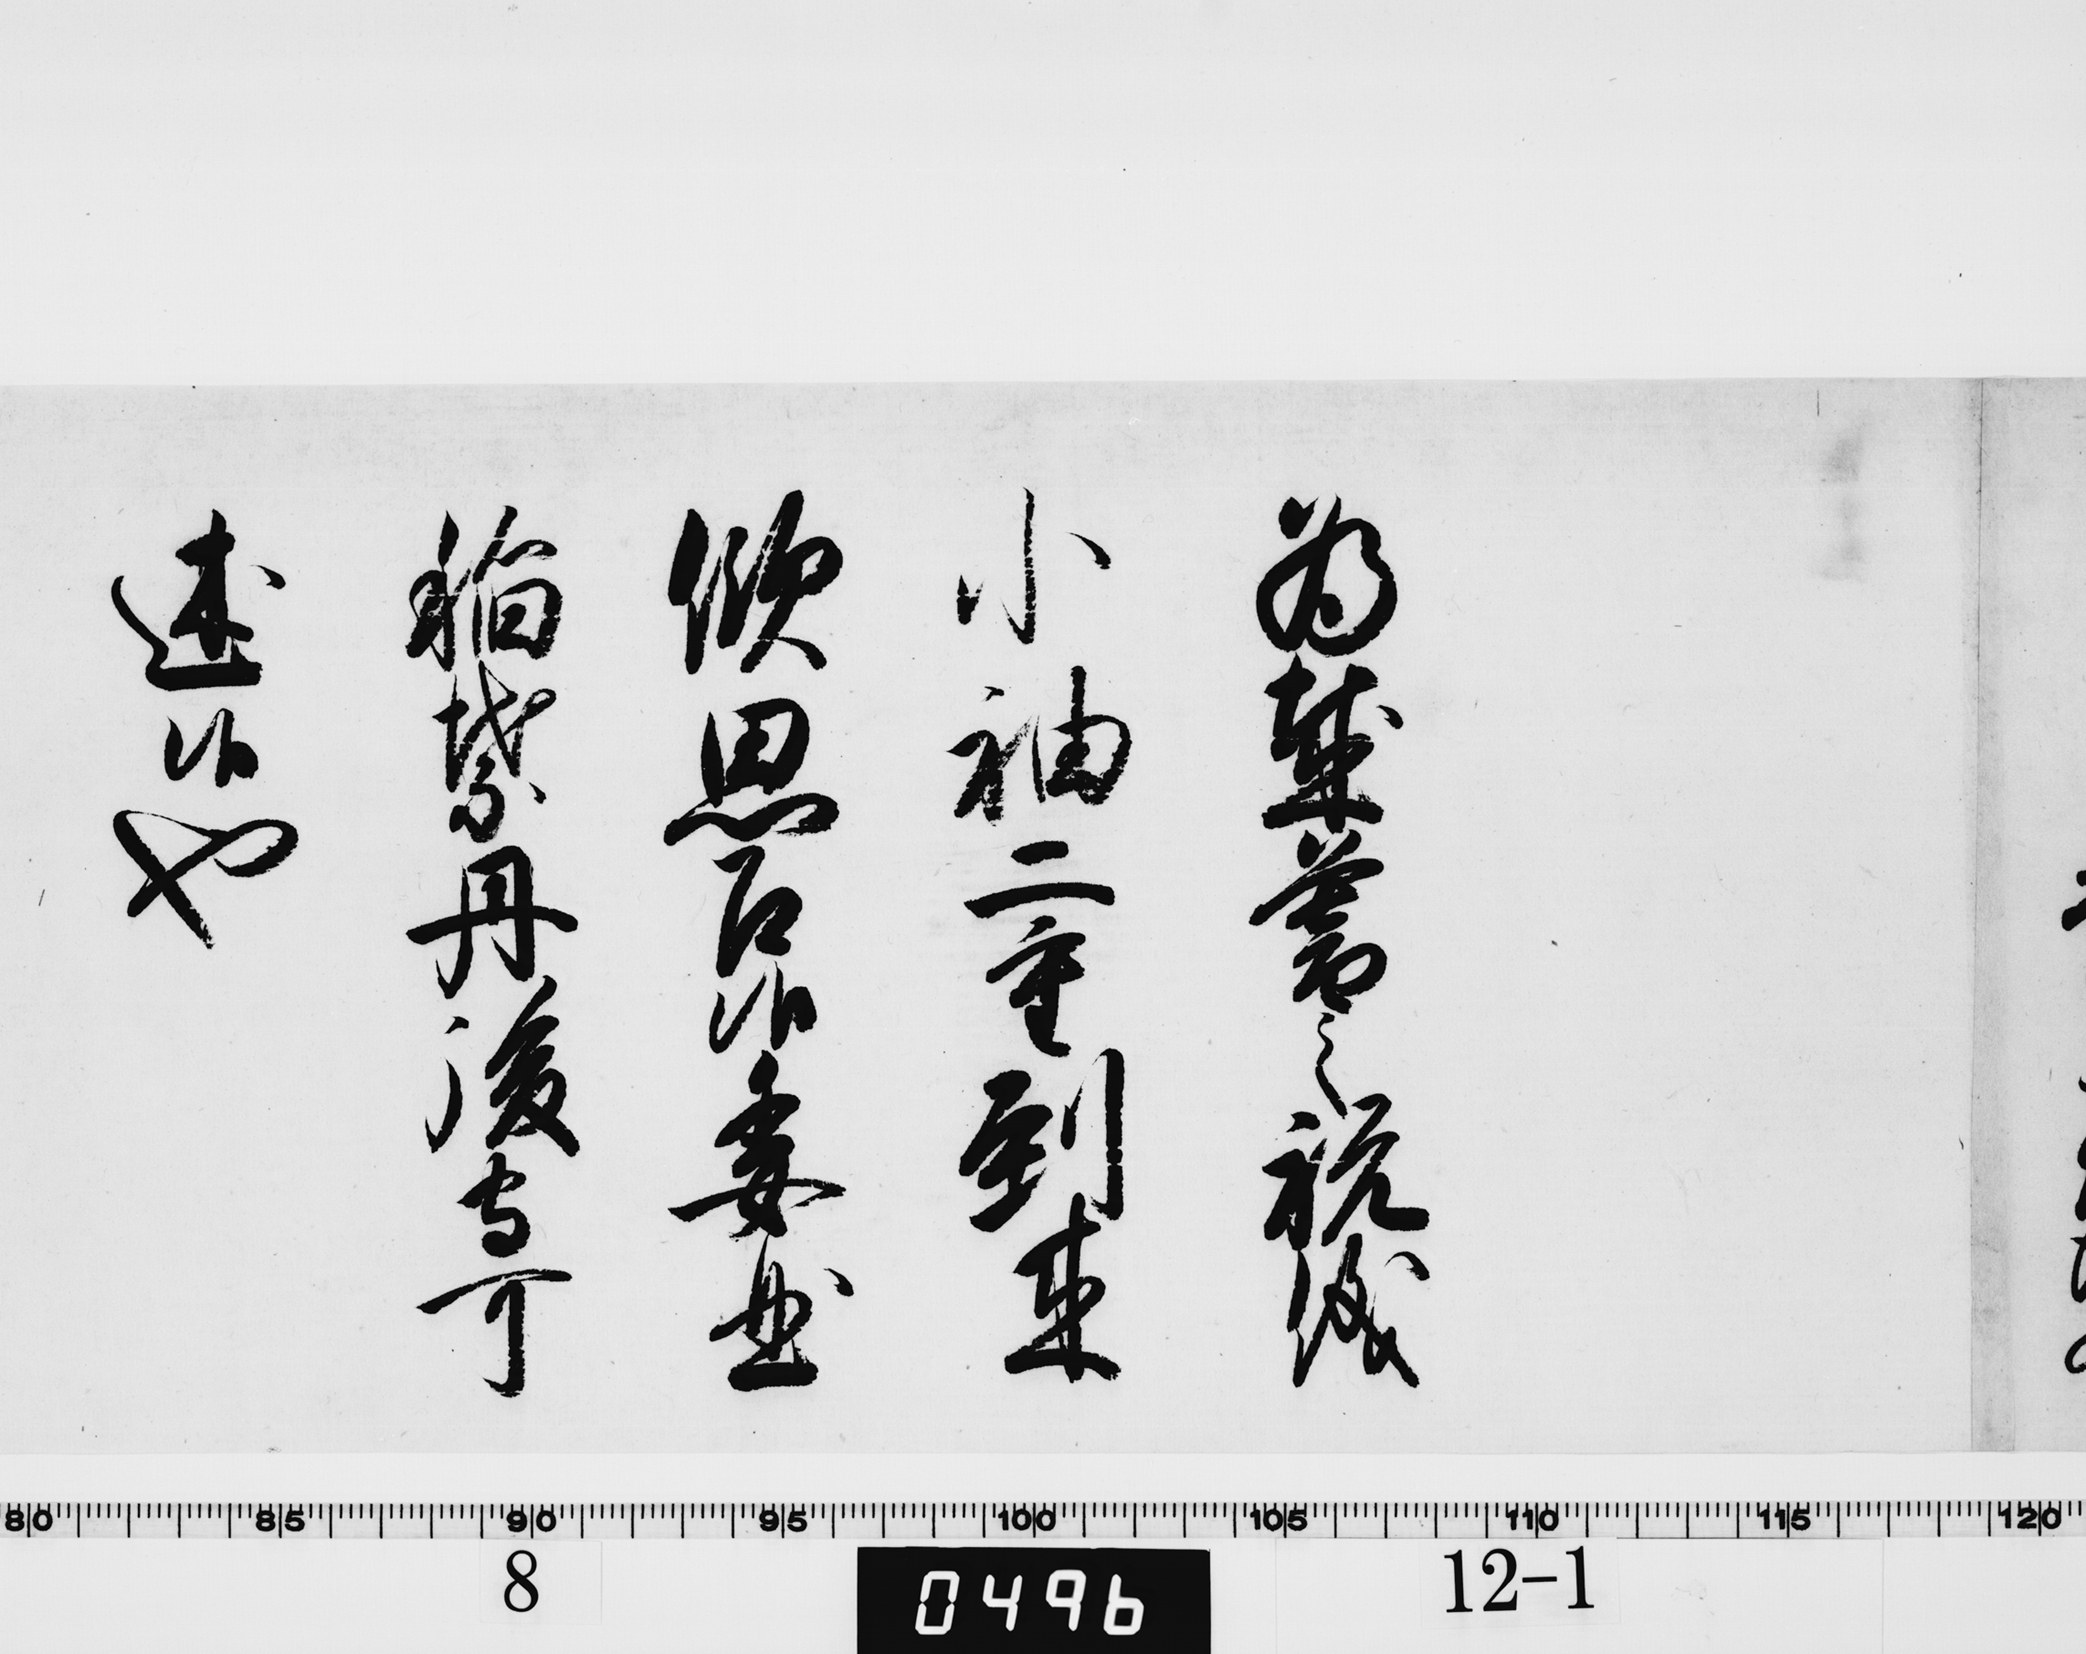 為歳暮之祝儀
小袖二重到来
歓思召候委曲
稲葉丹後守可
述候也
80 85 90 95 100 105 110 115 120
8
0496
12-1